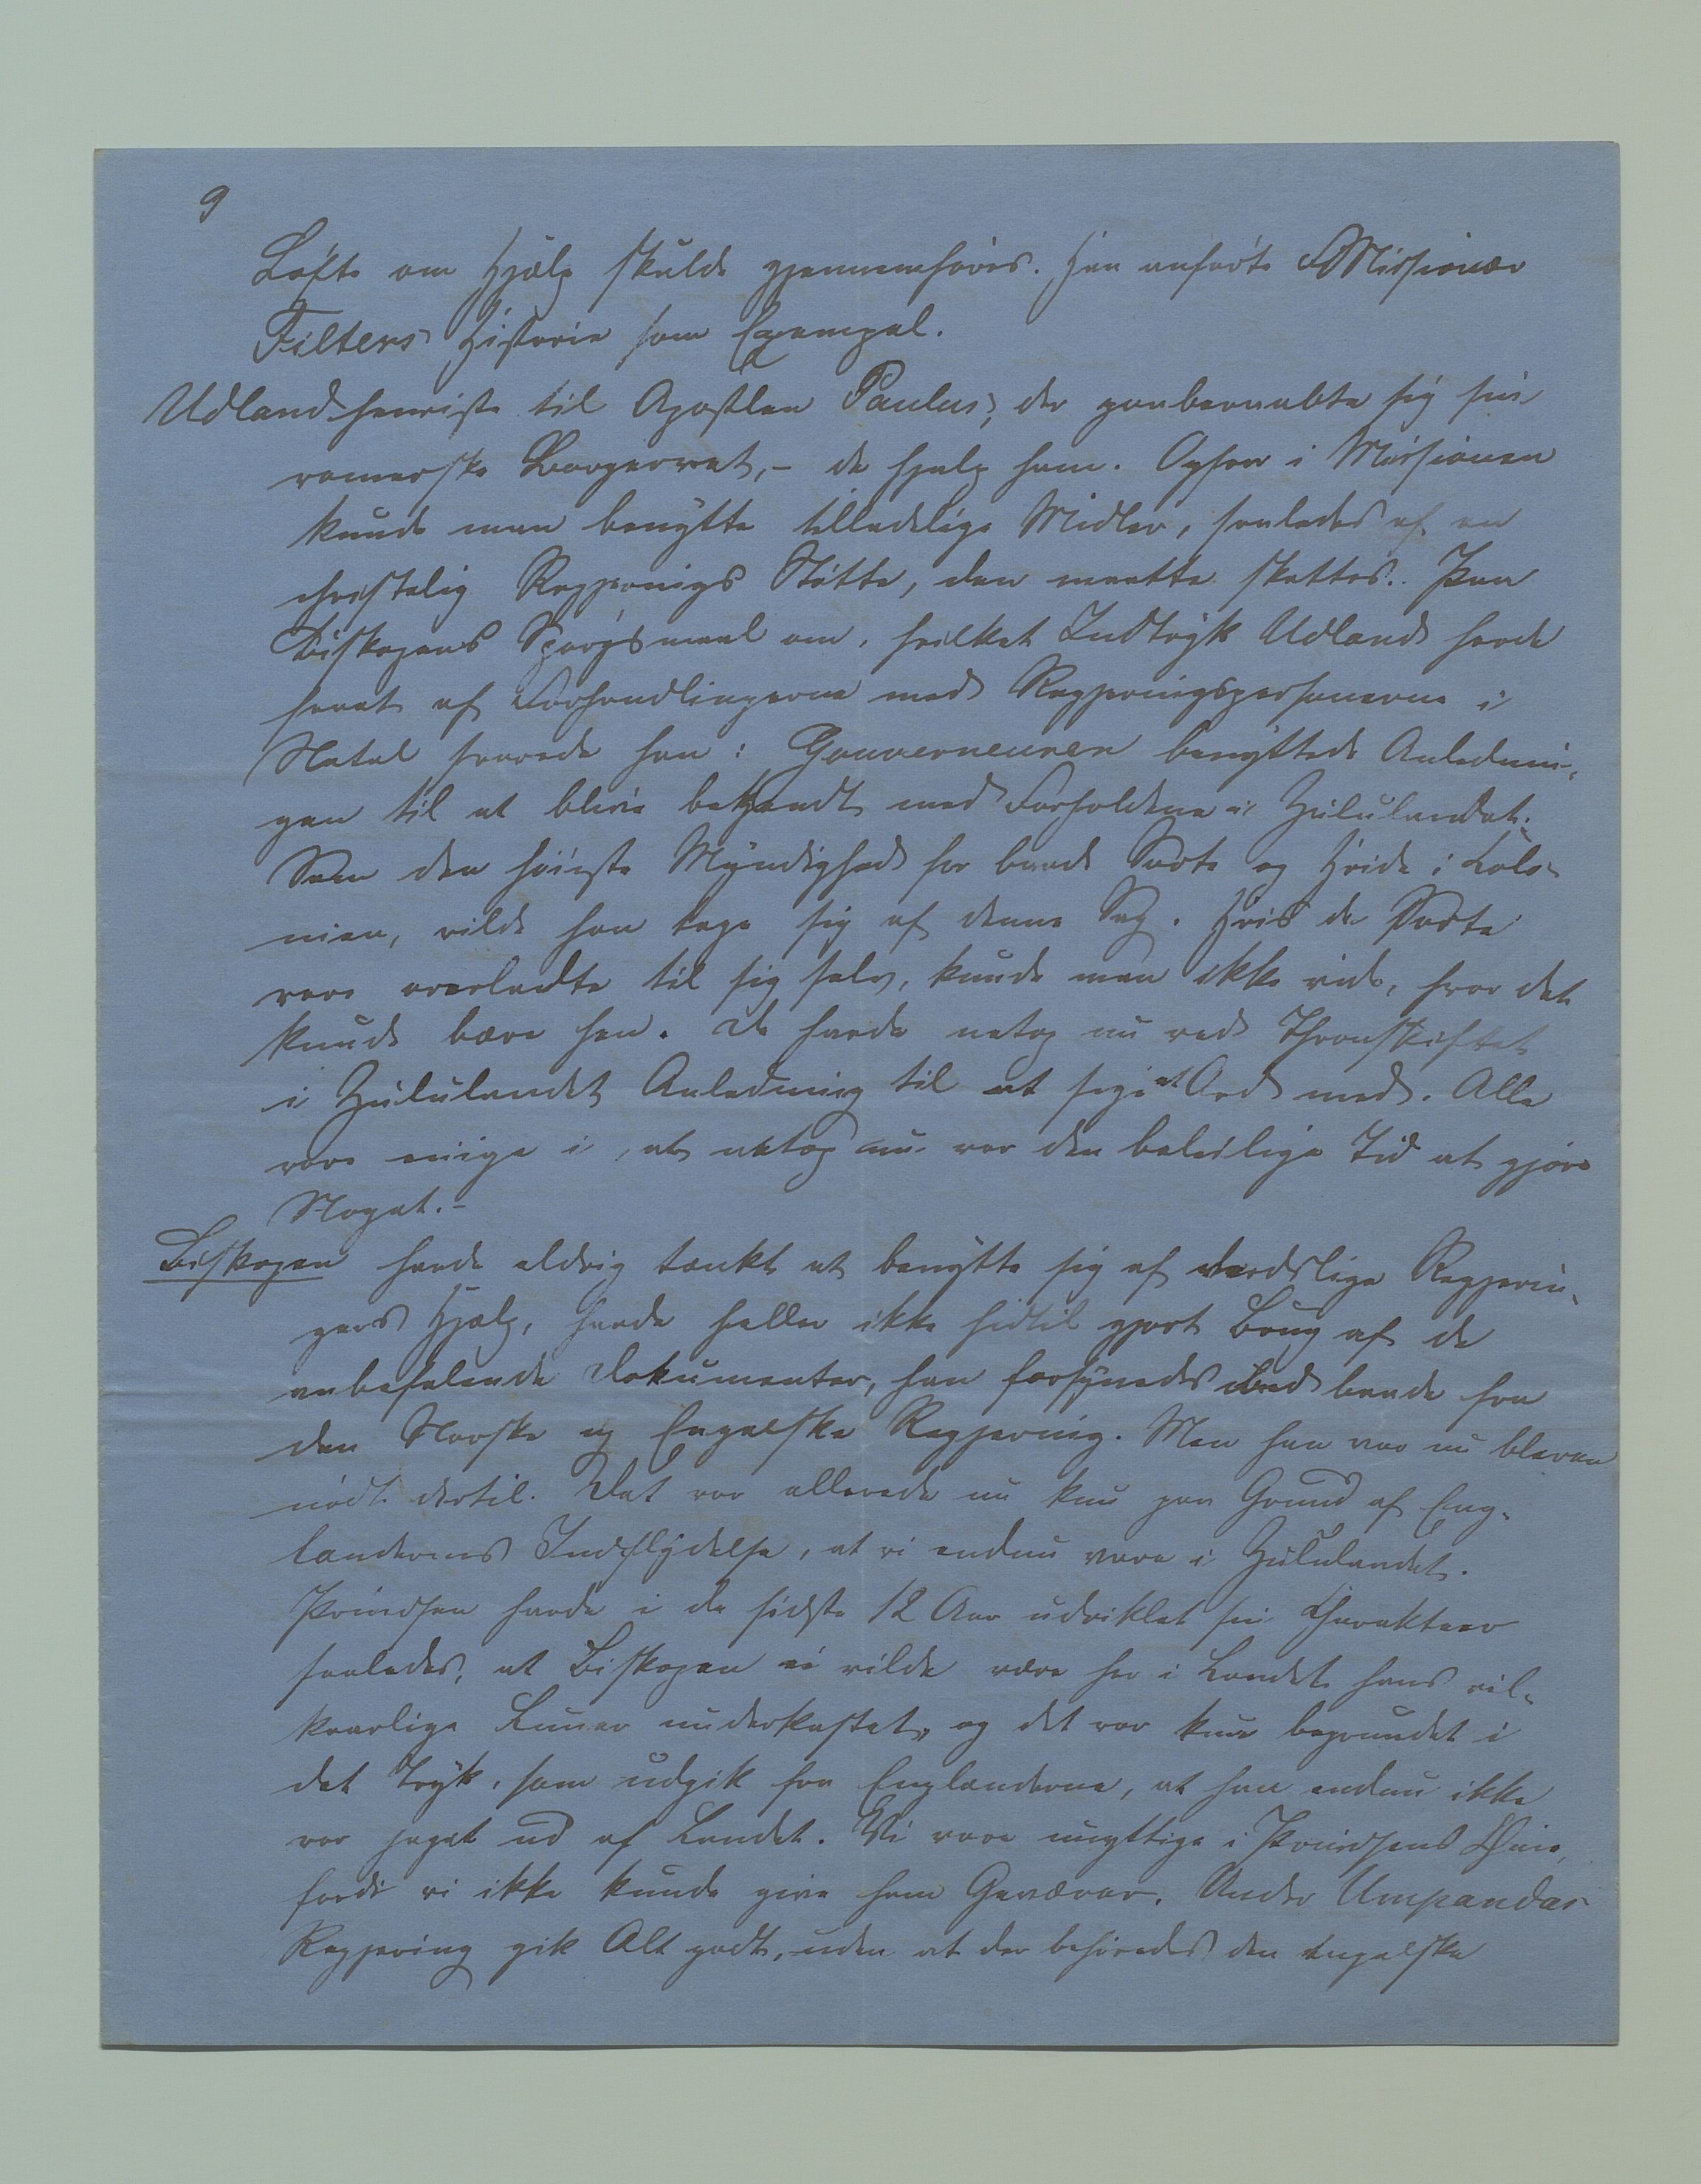 9
Løfte om Hjælp skulde gjennemføres. Han anførte Missionær
Filters Historie som Exempel.
Udland henviste til Apostlen Paulus, der paaberaabte sig sin
romerske Borgerret, – de hjalp ham. Ogsaa i Missionen
kunde man benytte tilladelige Midler, saaledes af en
christelig Regjerings Støtte, den maatte skattes. Paa
Biskopens Spørgsmaal om, hvilket Indtryk Udland havde
havt af Forhandlingerne med Regjeringspersonerne i
Natal svarede han: Gouverneuren benyttede Anlednin-
gen til at blive bekjendt med Forholdene i Zululandet.
Som den høieste Myndighed for baade Sorte og Hvide i Kolo-
nien, vilde han tage sig af denne Sag. Hvis de Sorte
vare overladte til sig selv, kunde man ikke vide, hvor det
kunde bære hen. De havde netop nu ved Thronskiftet
i Zululandet Anledning til at sige et Ord med. Alle
vare enige i, at netop nu var den beleilige Tid at gjøre
Noget. –
Biskopen havde aldrig tænkt at benytte sig af verdslige Regjerin-
gers Hjælp, havde heller ikke hidtil gjort Brug af de
anbefalende Dokumenter, han forsynedes med baade fra
den Norske og Engelske Regjering. Men han var nu bleven
nødt dertil. Det var allerede nu kun paa Grund af Eng-
lændernes Indflydelse, at vi endnu vare i Zululandet.
Prindsen havde i de sidste 12 Aar udviklet sin Charakteer
saaledes, at Biskopen ei vilde være her i Landet hans vil-
kaarlige Luner underkastet, og det var kun begrundet i
det Tryk, som udgik fra Englænderne, at han endnu ikke
var jaget ud af Landet. Vi vare unyttige i Prindsens Øine,
fordi vi ikke kunde give ham Geværer. Under Umpandas
Regjering gik Alt godt, uden at der behøvedes den engelske